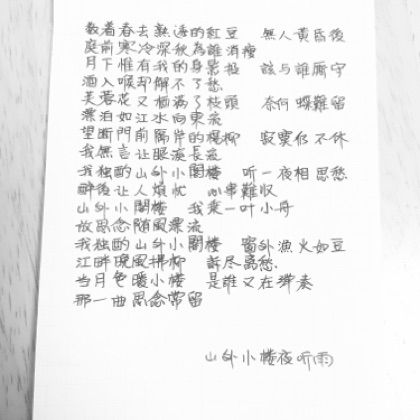 数着春去熟透的紅豆 無人黄昏後
庭前寒冷深秋為誰消瘦
月下惟有我的身影投 該与誰厮守
酒入喉却解不了愁
芙蓉花又栖满了枝頭 奈何蝶難留
漂泊如江水向東流
望断門前隔岸的楊柳 寂寞仍不休
我無言讓眼淚長流
我独酌山外小閣樓 听一夜相思愁
醉後让人煩忧 心事難収
山外小閣樓 我乘一叶小舟
放思念随風漂流
我独酌山外小閣樓 窗外漁火如豆
江畔晚風拂柳 訴尽离愁
当月色暖小樓 是誰又在弹奏
那一曲思念常留
山外小樓夜听雨